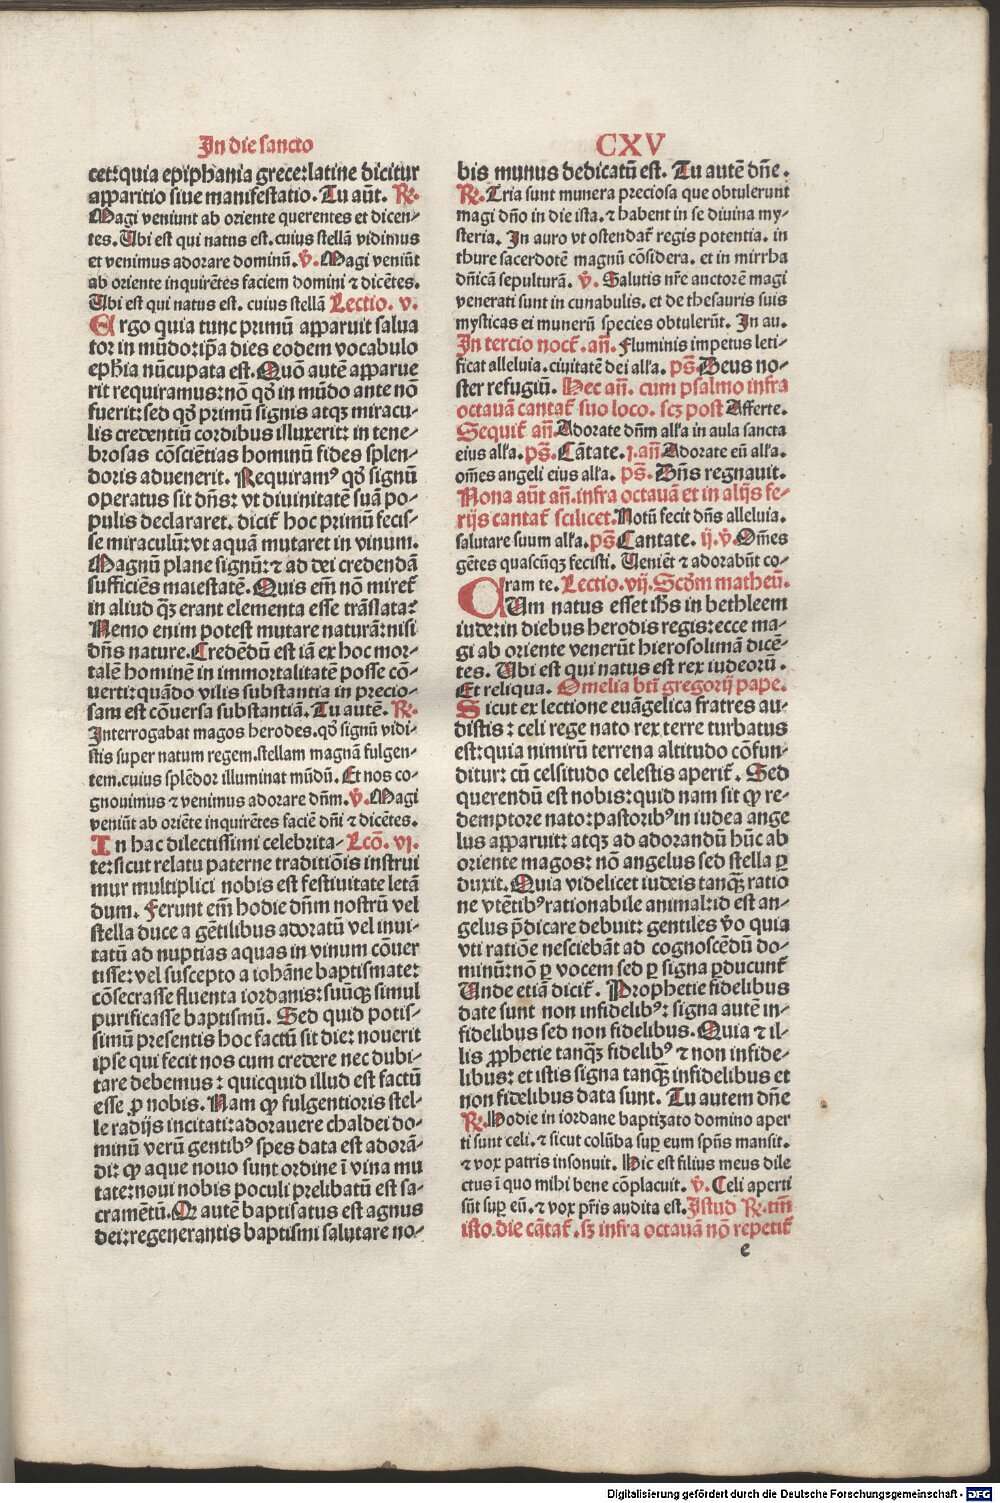 In die sancto
CXV
cet: quia epiphania grece: latine dicitur
apparitio siue manifestatio. Tu aūt. ℟.
Magi veniunt ab oriente querentes et dicen-
tes. Ubi est qui natus est. cuius stellā vidimus
et venimus adorare dominū. ℣. Magi veniūt
ab oriente inquirētes faciem domini ⁊ dicētes.
Ubi est qui natus est. cuius stellā Lectio. v.
Ergo quia tunc primū apparuit salua
tor in mūdo: ip̄a dies eodem vocabulo
ephīa nūcupata est. Quō autē apparue
rit requiramus: nō qd̄ in mūdo ante nō
fuerit: sed qd̄ primū signis atqꝫ miracu-
lis credentiū cordibus illuxerit: in tene-
brosas cōsciētias hominū fides splen-
doris aduenerit. Requiramꝰ qd̄ signū
operatus sit dn̄s: vt diuinitatē suā po-
pulis declararet. dicit̄ hoc primū fecis-
se miraculū: vt aquā mutaret in vinum.
Magnū plane signū: ⁊ ad dei credendā
sufficiēs maiestatē. Quis em̄ nō miret̄
in aliud qꝫ̄ erant elementa esse trāslata:
Nemo enim potest mutare naturā: nisi
dn̄s nature. Credēdū est iā ex hoc mor-
talē hominē in immortalitatē posse cō-
uerti: quādo vilis substantia in precio-
sam est cōuersa substantiā. Tu autē. ℟.
Interrogabat magos herodes. qd̄ signū vidi-
stis super natum regem. stellam magnā fulgen-
tem. cuius splēdor illuminat mūdū. Et nos co-
gnouimus ⁊ venimus adorare dn̄m. ℣. Magi
veniūt ab oriēte inquirētes faciē dn̄i ⁊ dicētes.
In hac dilectissimi celebrita- Lcō. vj.
te: sicut relatu paterne traditiōis instrui
mur multiplici nobis est festiuitate letā
dum. Ferunt em̄ hodie dn̄m nostrū vel
stella duce a gētilibus adoratū vel inui-
tatū ad nuptias aquas in vinum cōuer
tisse: vel suscepto a iohāne baptismate:
cōsecrasse fluenta iordanis: suūqꝫ simul
purificasse baptismū. Sed quid potis-
simū presentis hoc factū sit die: nouerit
ipse qui fecit nos cum credere nec dubi-
tare debemus: quicquid illud est factū
esse ꝓ nobis. Nam ꝙ fulgentioris stel-
le radijs incitati: adorauere chaldei do-
minū verū gentibꝰ spes data est adorā-
di: ꝙ aque nouo sunt ordine ī vina mu
tate: noui nobis poculi prelibatū est sa-
cramētū. Qꝛ autē baptisatus est agnus
dei: regenerantis baptismi salutare no-
bis munus dedicatū est. Tu autē dn̄e.
℟. Tria sunt munera preciosa que obtulerunt
magi dn̄o in die ista. ⁊ habent in se diuina my-
steria. In auro vt ostendat̄ regis potentia. in
thure sacerdotē magnū cōsidera. et in mirrha
dn̄icā sepulturā. ℣. Salutis nr̄e auctorē magi
venerati sunt in cunabulis. et de thesauris suis
mysticas ei munerū species obtulerūt. In au.
In tercio noct̄. an̄. Fluminis impetus leti-
ficat alleluia. ciuitatē dei all'a. pṡ. Deus no-
ster refugiū. Hec an̄. cum psalmo infra
octauā cantat̄ suo loco. scꝫ post Afferte.
Sequit̄ an̄. Adorate dn̄m all'a in aula sancta
eius all'a. pṡ. Cātate. j. an̄. Adorate eū all'a.
om̄es angeli eius all'a. pṡ. Dn̄s regnauit.
Nona aūt an̄. infra octauā et in alijs fe-
rijs cantat̄ scilicet. Notū fecit dn̄s alleluia.
salutare suum all'a. pṡ. Cantate. ij. ℣. Om̄es
gētes quascūqꝫ fecisti. Ueniēt ⁊ adorabūt co-
ram te. Lectio. vij. Scd̄m matheū.
CUm natus esset ih̄s in bethleem
iude: in diebus herodis regis: ecce ma-
gi ab oriente venerūt hierosolimā dicē-
tes. Ubi est qui natus est rex iudeorū.
Et reliqua. Omelia bt̄i gregorij pape.
Sicut ex lectione euāgelica fratres au-
distis: celi rege nato rex terre turbatus
est: quia nimirū terrena altitudo cōfun-
ditur: cū celsitudo celestis aperit̄. Sed
querendū est nobis: quid nam sit ꝙ re-
demptore nato: pastoribꝰ in iudea ange
lus apparuit: atqꝫ ad adorandū hūc ab
oriente magos: nō angelus sed stella ꝑ
duxit. Quia videlicet iudeis tanqꝫ̄ ratio
ne vtētibꝰ rationabile animal: id est an-
gelus p̄dicare debuit: gentiles v̄o quia
vti ratiōe nesciebāt ad cognoscēdū do-
minū: nō ꝑ vocem sed ꝑ signa ꝑducunt̄
Unde etiā dicit̄. Prophetie fidelibus
date sunt non infidelibꝰ: signa autē in-
fidelibus sed non fidelibus. Quia ⁊ il-
lis ꝓphetie tanqꝫ̄ fidelibꝰ ⁊ non infide-
libus: et istis signa tanqꝫ̄ infidelibus et
non fidelibus data sunt. Tu autem dn̄e
℟. Hodie in iordane baptizato domino aper
ti sunt celi. ⁊ sicut colūba suꝑ eum spūs mansit.
⁊ vox patris insonuit. Hic est filius meus dile
ctus ī quo mihi bene cōplacuit. ℣. Celi aperti
sūt suꝑ eū. ⁊ vox pr̄is audita est. Istud ℟. tm̄
isto die cātat̄. sꝫ infra octauā nō repetit̄
e
Digitalisierung gefördert durch die Deutsche Forschungsgemeinschaft - DFG